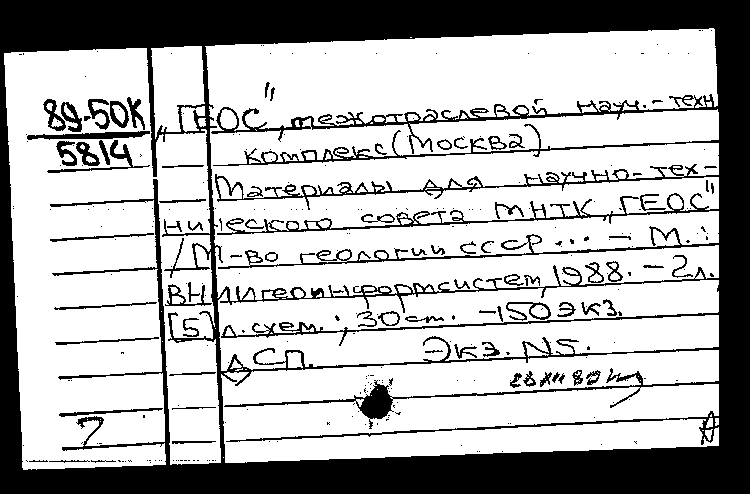 89-50К
5814
„ГЕОС", межотраслевой науч.-техн
комплекс (Москва).
Материалы для научно-тех-
нического совета МНТК „ГЕОС"
/ М-во геологии СССР ... - М. :
ВНИИгеоинформсистем, 1988. - 2 л.,
[5] л. схем. ; 30 см. - 150 экз.
ДСП. Экз. N5.
7